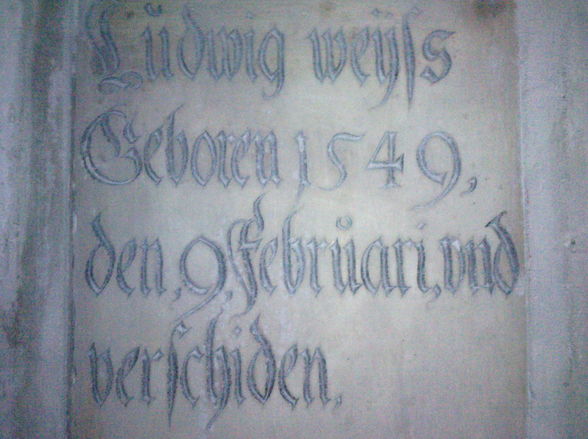 Lŭdwig weÿſs
Geboren 1549,
den, 9, Febrŭari, vnd
verſchiden,